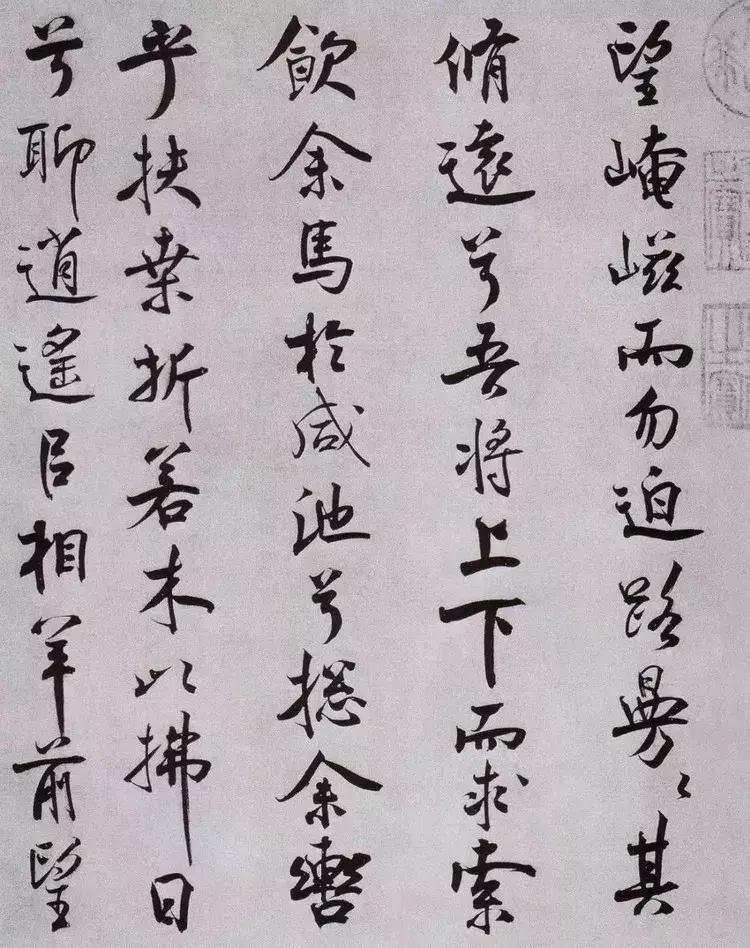 望崦嵫而勿迫路曼〻其
脩遠兮吾将上下而求索
飲余馬於咸池兮摠余轡
乎扶桒折若木以拂日
兮聊逍遙㠯相羊前望